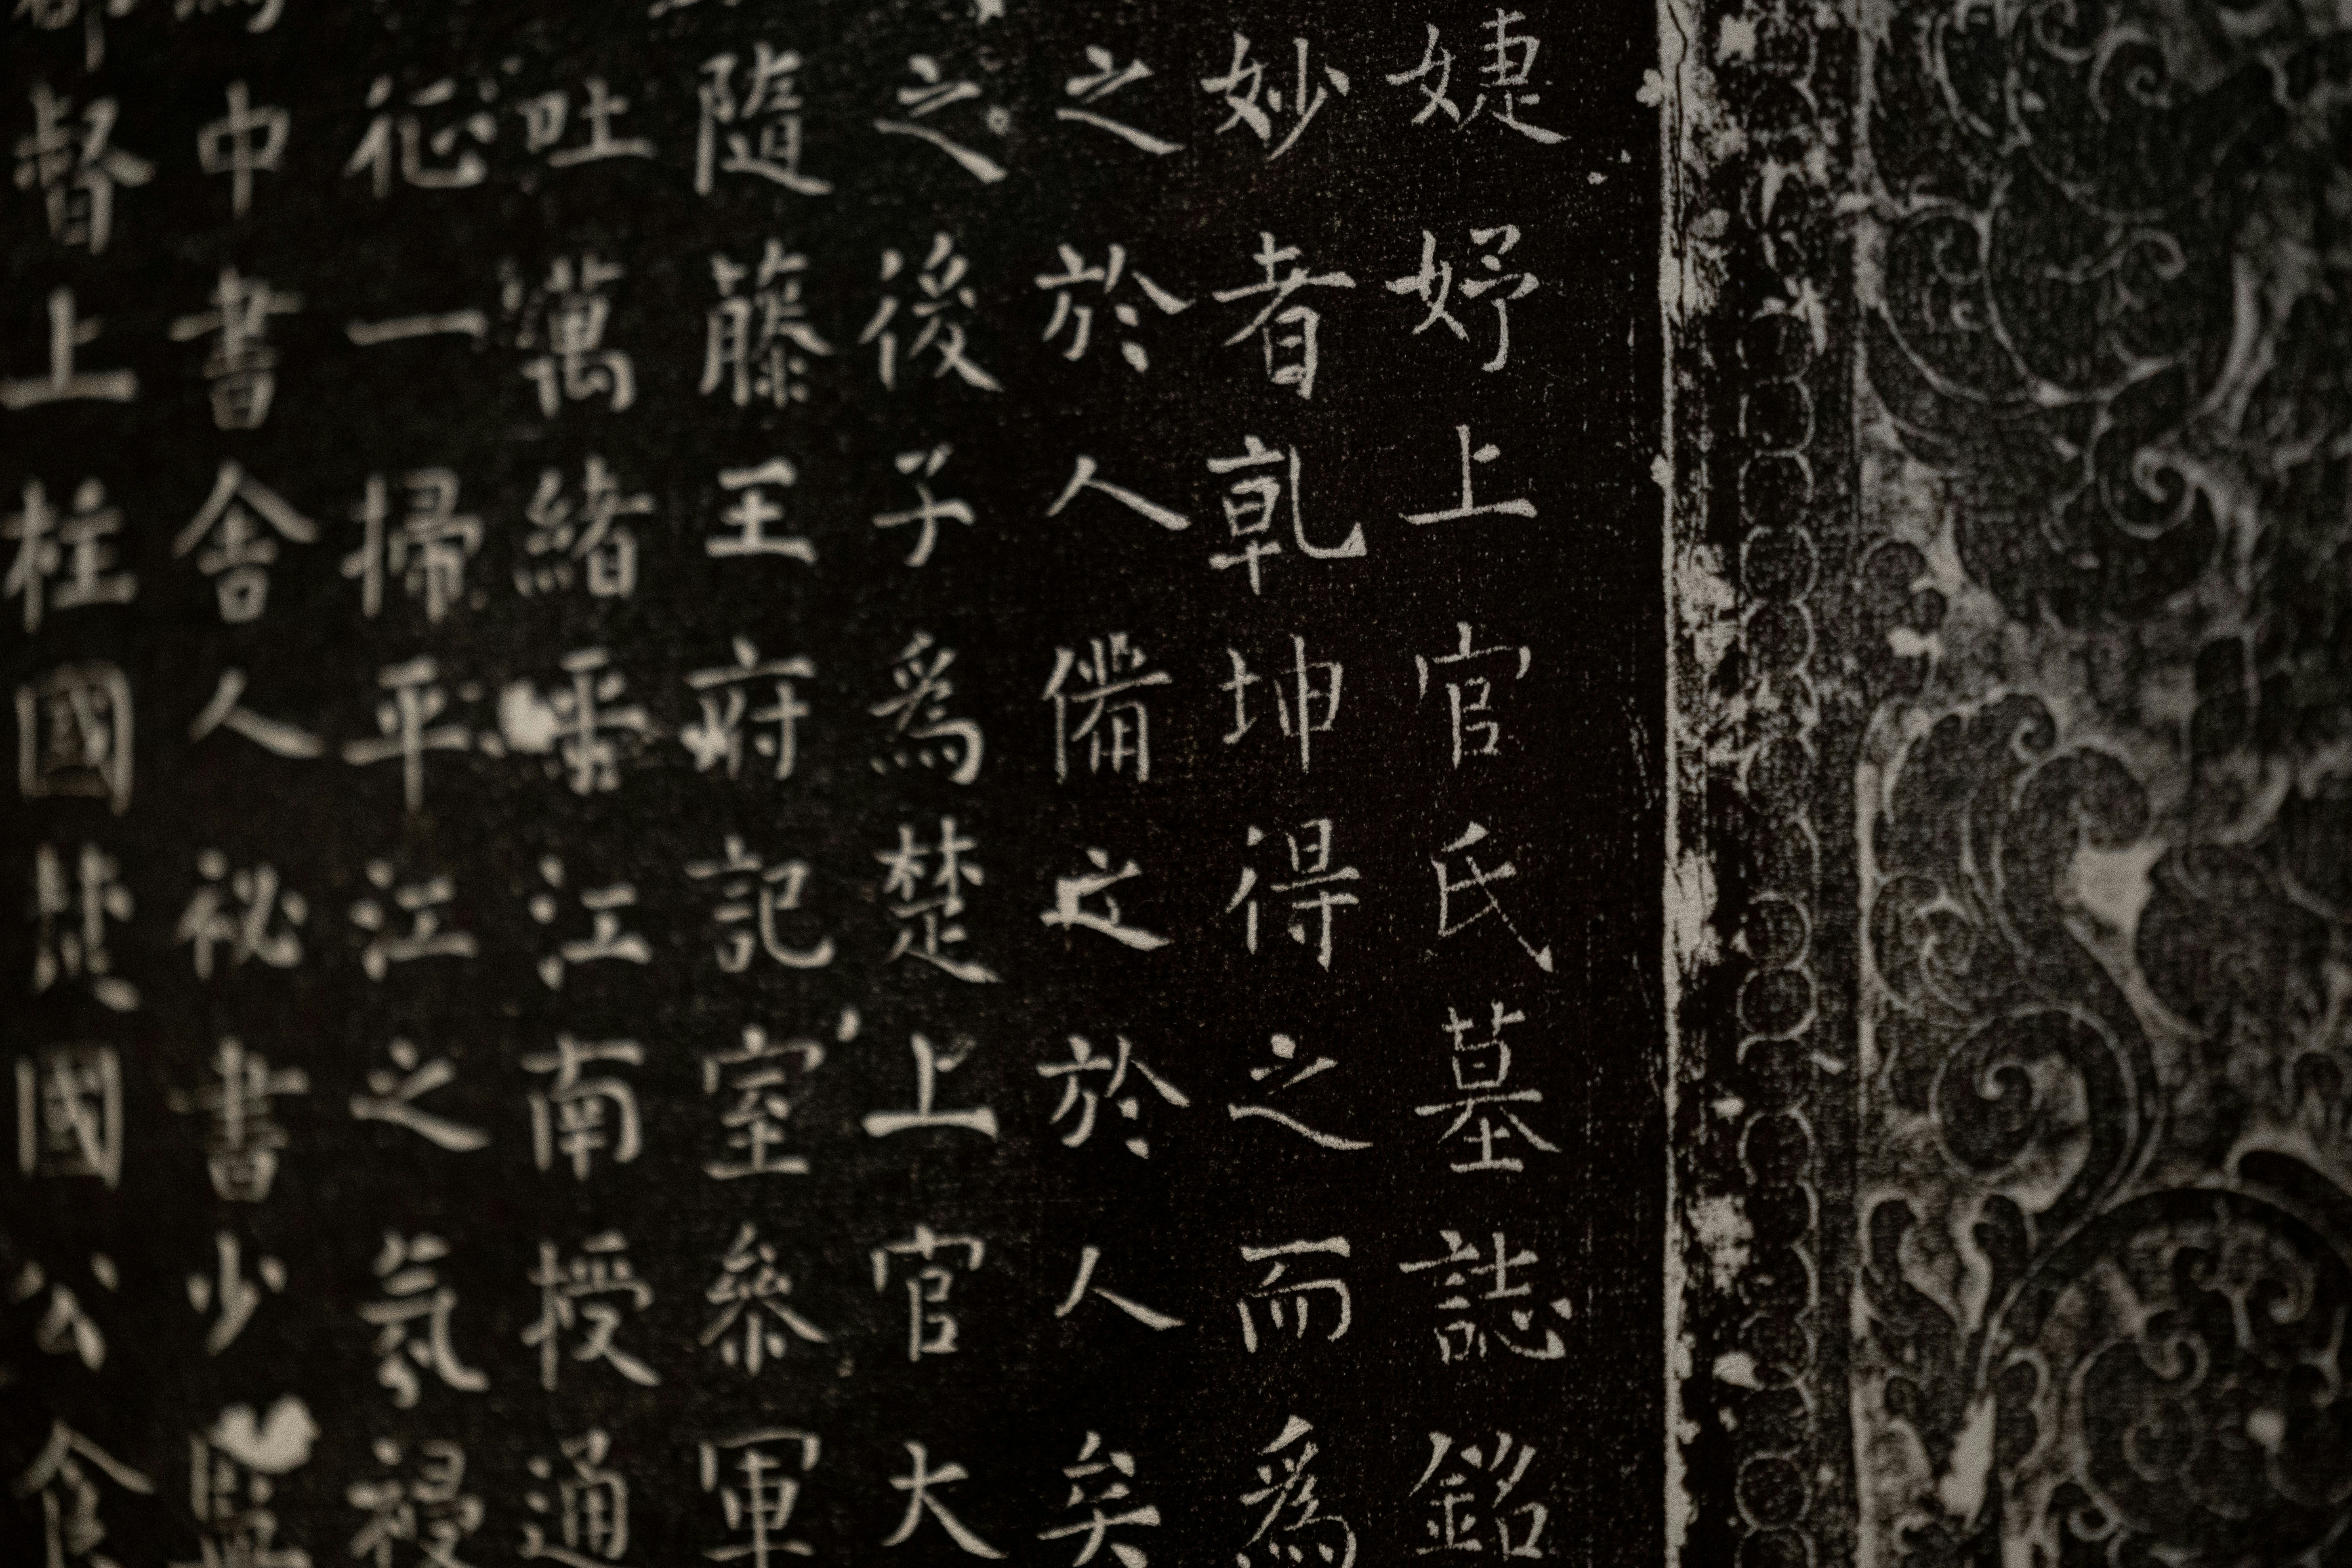 婕妤上官氏墓誌銘
妙者乹坤得之而為
之於人備之於人矣
之後子為楚上官大
隨藤王府記室叅軍
吐萬緒平江南授通
征一掃平江之氛祲
中書舍人祕書少監
督上柱國楚國公食